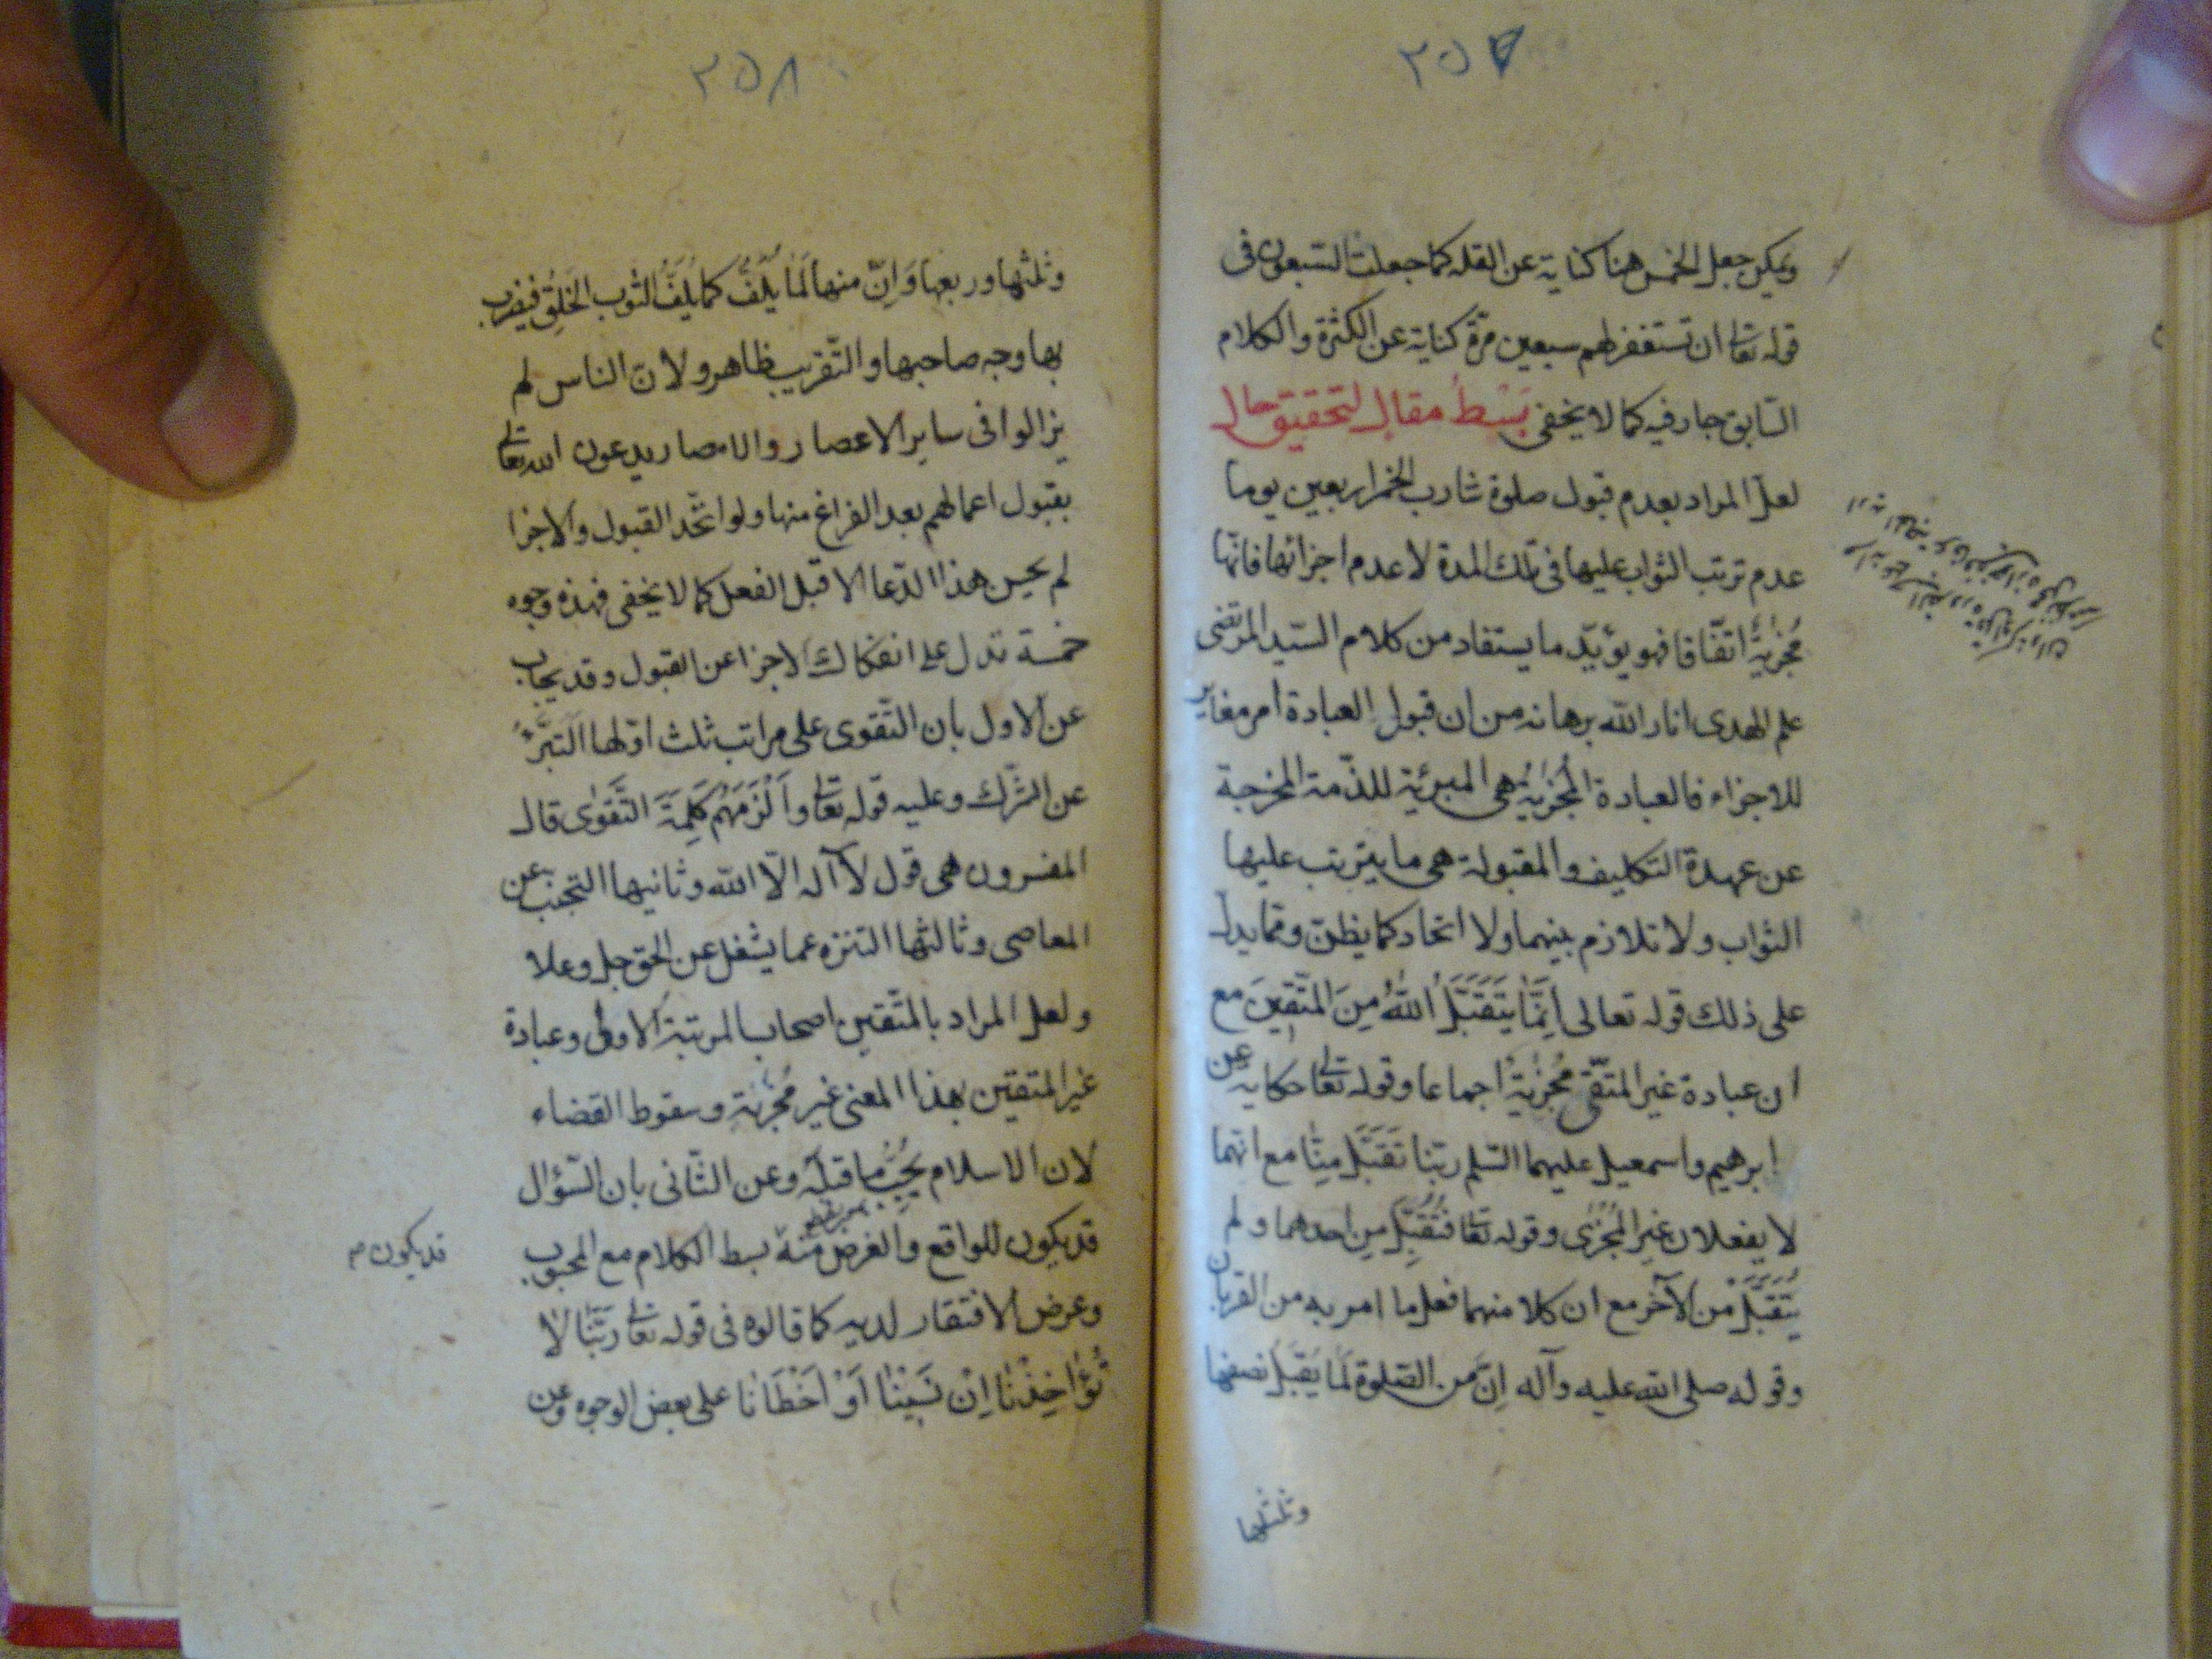 ٢٥٧
ويمكن جعل الخمس هنا كناية عن القله كما جعلت السبعون فى
قوله تعالى ان تستغفر لهم سبعين مرّة كناية عن الكثرة والكلام
السّابق جار فيه كما لا يخفى بَسْطُ مقال لتحقيق حال
لعل المراد بعدم قبول صلوة شارب الخمر اربعين يوما
عدم ترتب الثواب عليها فى تلك المدة لا عدم اجزائها فانّها
مُجْزِيَةٌ اتفّاقا فهو يؤيّد ما يستفاد من كلام السّيد المرتضى
علم الهدى انار اللّه برهانه من ان قبول العبادة امر مغاير
للاجزاء فالعبادة المُجْزِيَةُ هى المبرئية للذّمة المخرجة
عن عهدة التكليف والمقبولة هى ما يترتب عليها
الثواب ولا تلازم بينهما ولا اتحاد كما يظنّ ومما يدل
على ذلك قوله تعالى اِنَّمَا يَتَقَبَّلُ اللّٰهُ مِنَ المتَّقِينَ مع
ان عبادة غير المتقّى مُجْزِيَةٌ اجماعا وقوله تعالى حكايه عن
ابرهيم واسمعيل عليهما السّلم ربّنا تَقَبَّل مِنّا مع انّهما
لا يفعلان غير المُجْزى وقوله تعا فَتُقُبِّلَ مِن احدهما ولم
يُتَقَبَّلْ من الآخر مع ان كلا منهما فعل ما امر به من القربان
وقوله صلى اللّه عليه وآله اِنَّ من الصّلوة لَمَا يُقبَلُ نصفها
وثلثها
٢٥٨
وثلثها وربعها وَاِنَّ منها لَمَا يُلَفُّ كما يُلَفُّ الثوب الخَلِقُ فيضرب
بها وجه صاحبها والتّقريب ظاهر ولانّ الناس لم
يزالوا فى ساير الاعصار والامصار يدعون الله تعالى
بقبول اعمالهم بعد الفراغ منها ولو اتّحد القبول والاجزا
لم يحسن هذا الدّعا الا قبل الفعل كما لا يخفى فهذه وجوه
خمسة تدل على انفكاك الاجزا عن القبول وقد يجاب
عن الاول بان التّقوى على مراتب ثلث اوّلها التبَّرُّءُ
عن الشّرك وعليه قوله تعالى واَلْزَمَهُم كَلِمَةَ التَّقوٰى قال
المفسرون هى قول لا آله الّا اللّه وثانيها التجنب عن
المعاصى وثالثها التنزه عما يشغل عن الحق جل وعلا
ولعل المراد بالمتّقين اصحاب المرتبة الاولى وعبادة
غير المتقين بهذا المعنى غير مُجْزية وسقوط القضاء
لان الاسلام يَجُبُّ ما قبلَه وعن الثّانى بان السّؤال
قد يكون للواقع والغرض منه بسط الكلام مع المحبوب
قد يكون م
وعرض الافتقار لديه كما قالوه فى قوله تعالى رَبَّنَا لَا
تُؤَاخِذْنَا اِنْ نَسِينَا اَوْ اَخْطَانَا على بعض الوجوه وعن